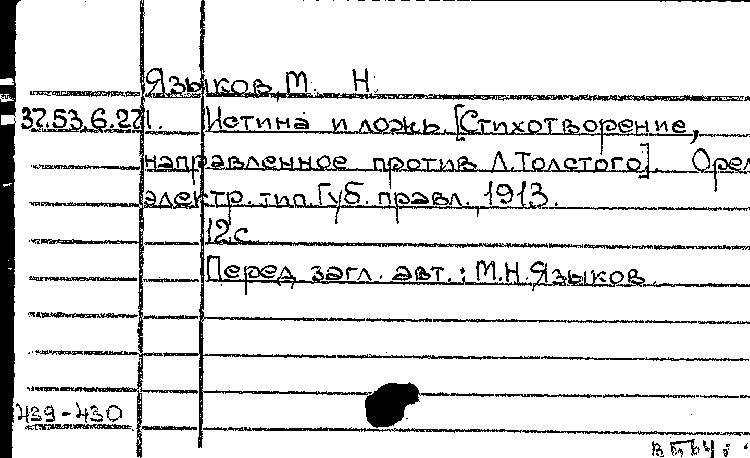 Языков, М. Н.
37.53.6.271. Истина и ложь. [Стихотворение,
направленное против Л.Толстого]. Орел
электр. тип. Губ. правл., 1913.
12с.
Перед загл. авт.: М.Н.Языков.
439-430